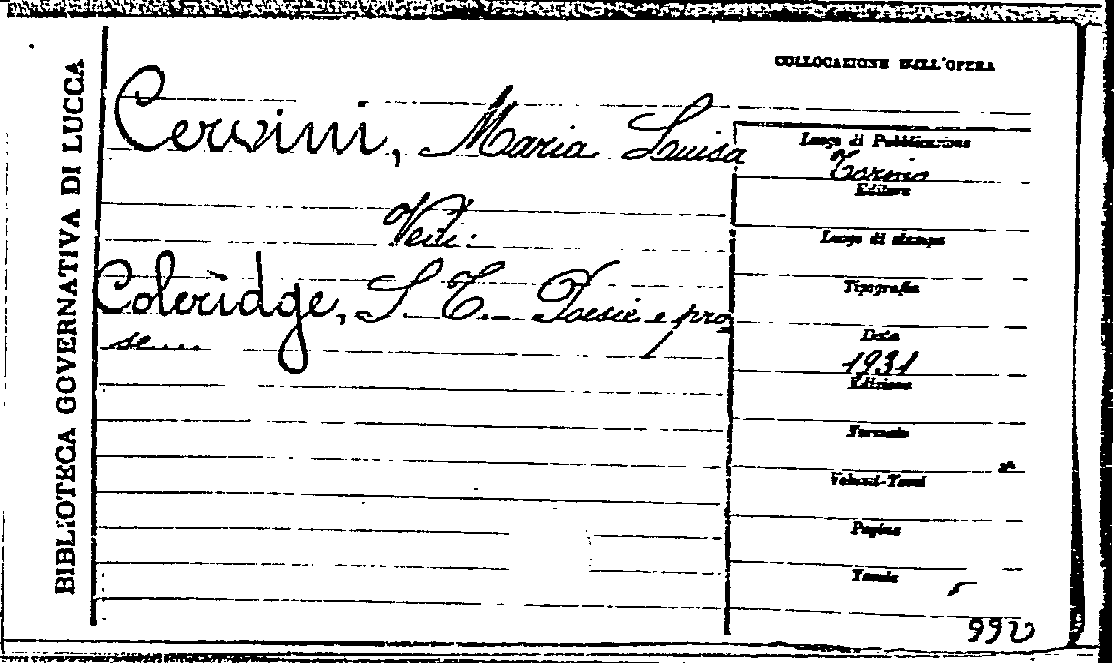 BIBLIOTECA GOVERNATIVA DI LUCCA
COLLOCAZIONE DELL'OPERA
Cervini, Maria Luisa
Vedi:
Coleridge, S. T. Poesie e pro-
se...
Luogo di Pubblicazione
Torino
Editore
Luogo di stampa
Tipografia
Data
1931
Edizione
Formato
Volumi-Tomi
Pagine
Tavole